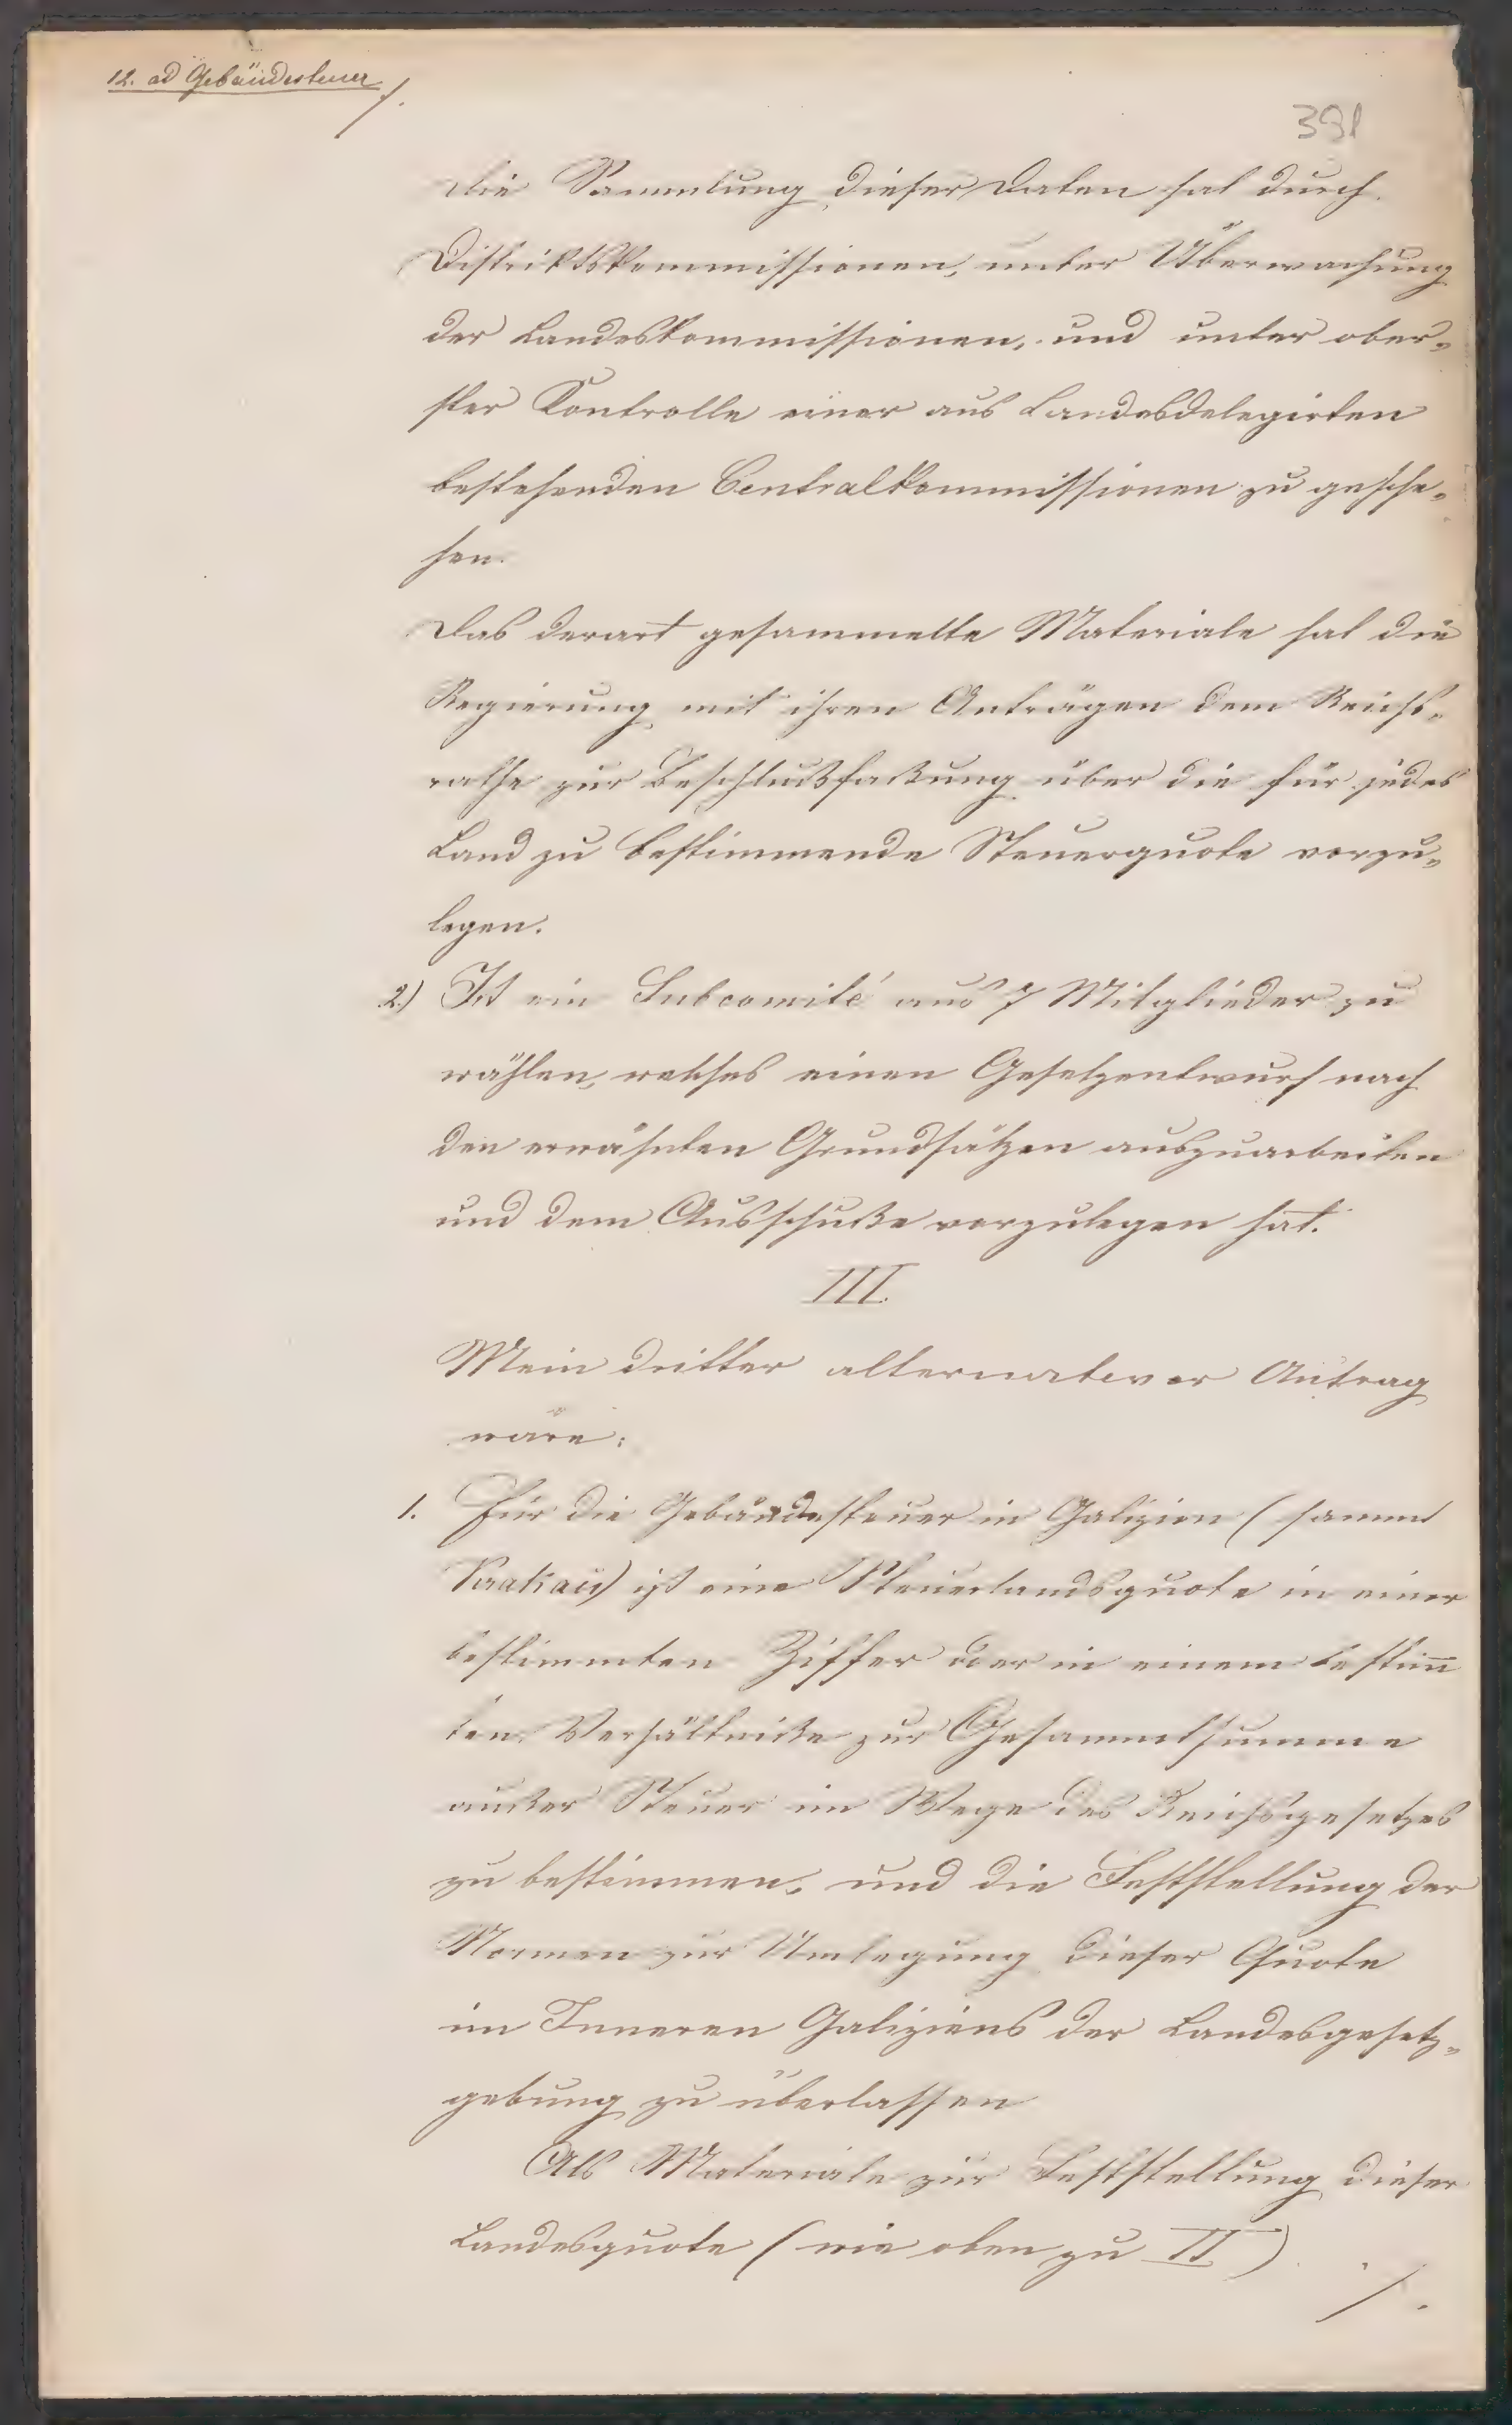 12. ad Gebäudesteuer /.
391
Die Sammlung dieser Daten hat durch
Distriktskommissionen, unter Überwachung
der Landeskommissionen, und unter ober-
ster Kontrolle einer aus Landesdelegirten
bestehenden Centralkommissionen zu gesche-
hen.
Das derart gesammelte Materiale hat die
Regierung mit ihren Anträgen dem Reichs-
rathe zur Beschlußfaßung über die für jedes
Land zu bestimmende Steuerquote vorzu-
legen.
2.) Ist ein Subcomité aus 7 Mitglieder zu
wählen, welches einen Gesetzentwurf nach
den erwähnten Grundsätzen auszuarbeiten
und dem Ausschuße vorzulegen hat.
III.
Mein dritter alternativer Antrag
wäre:
1. Für die Gebäudesteuer in Galizien (sammt
Krakau) ist eine Steuerlandsquote in einer
bestimmten Ziffer oder in einem bestim̄
ten Verhältniße zur Gesammtsumme
außer Steuer im Wege des Reichsgesetzes
zu bestimmen, und die Feststellung der
Normen zur Umlegung dieser Quote
im Inneren Galiziens der Landesgesetz-
gebung zu überlassen
Als Materiale zur Feststellung dieser
Landesquote (wie oben zu II)
/.